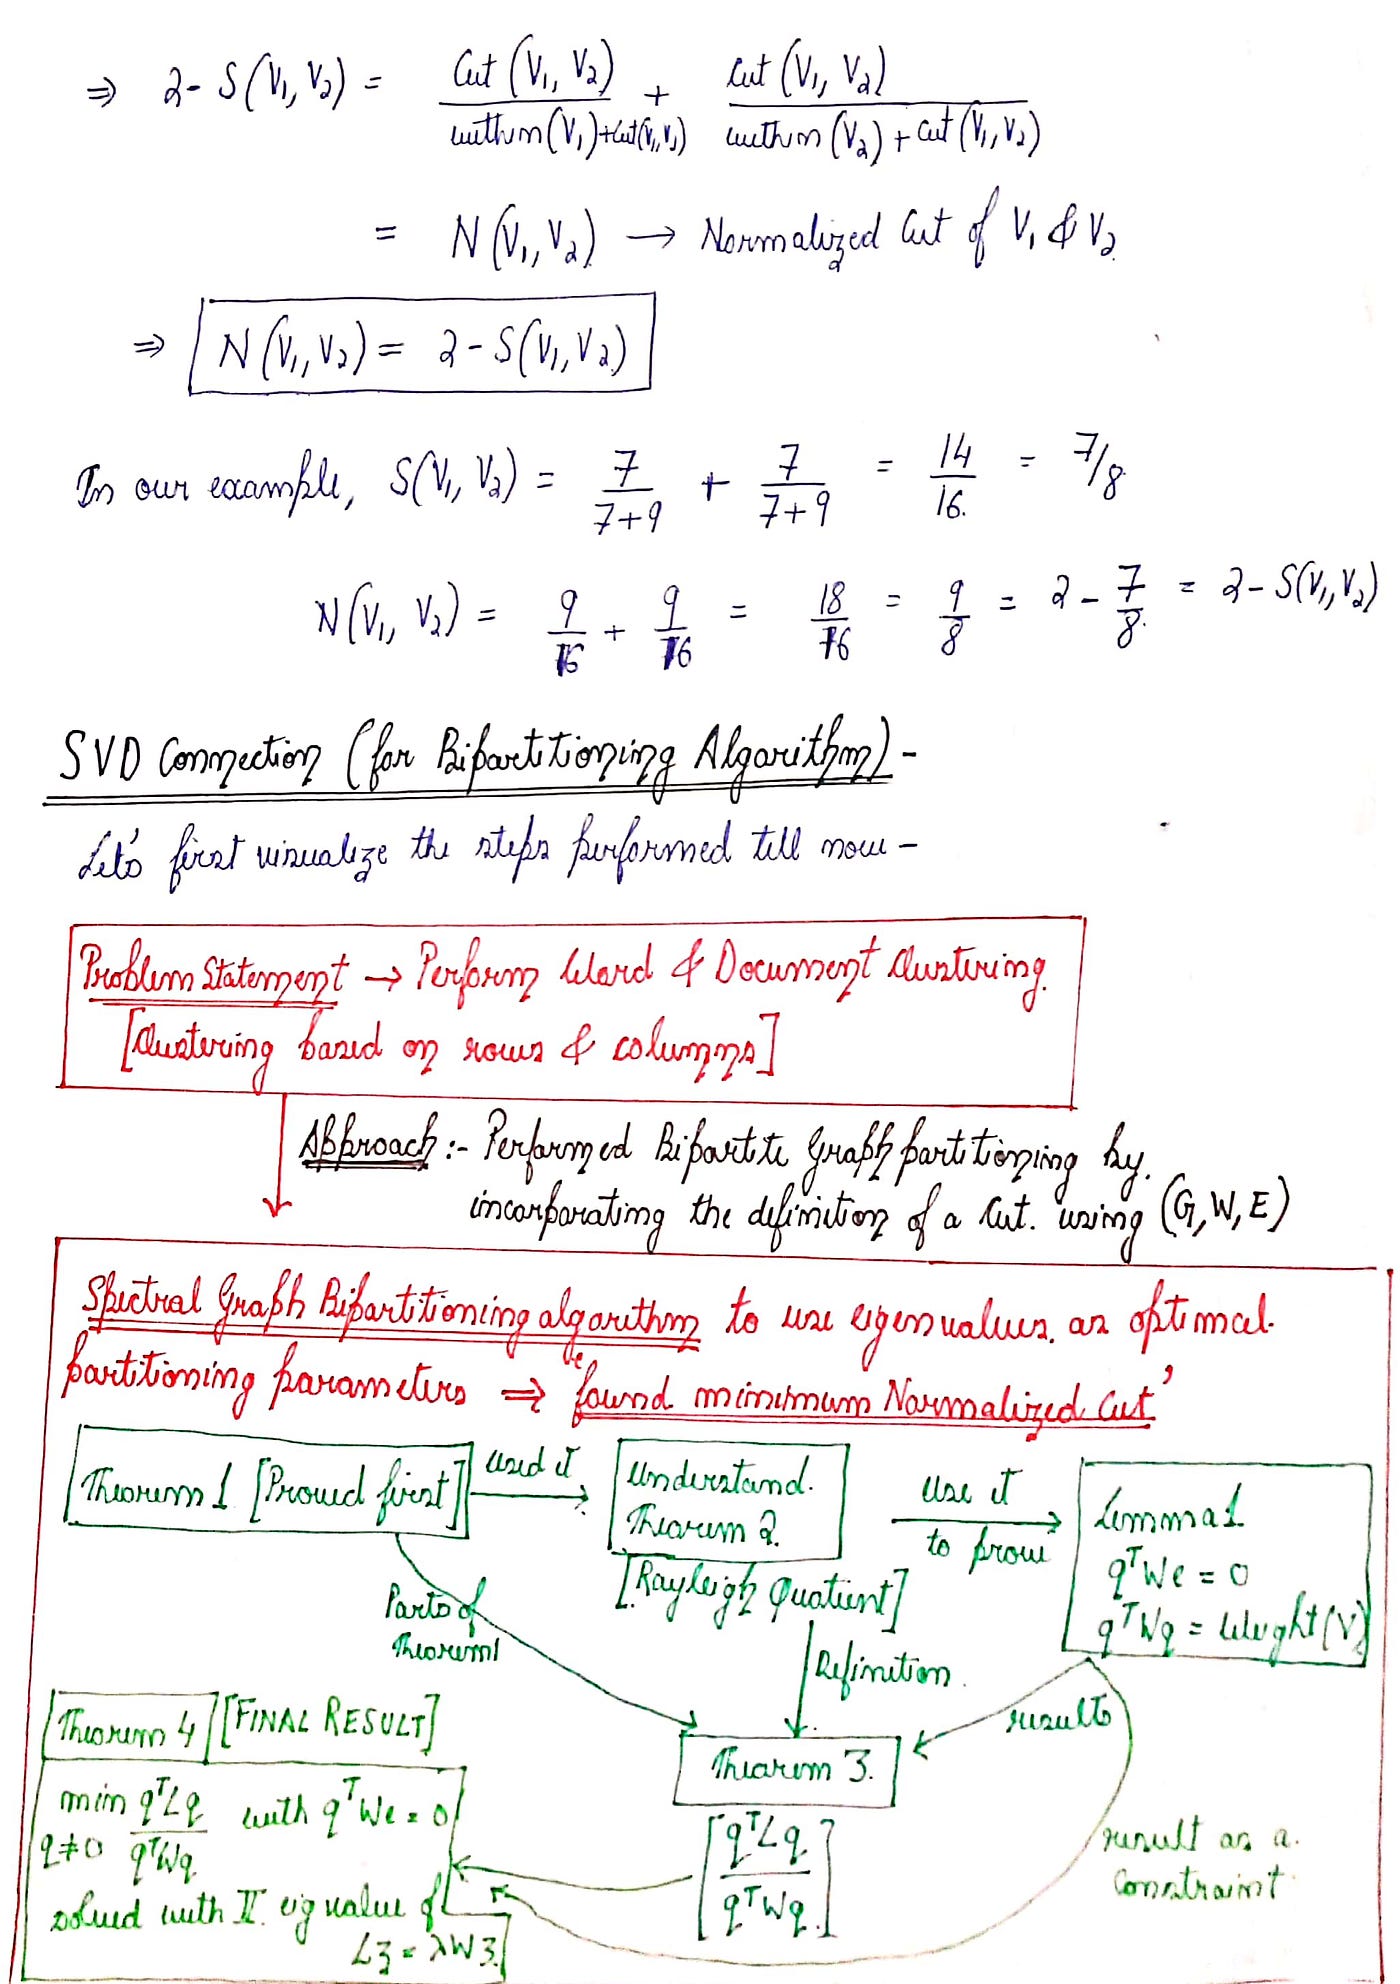 ⇒ 2 - S(V₁, V₂) = Cut(V₁, V₂) / within(V₁)+cut(V₁,V₂) + Cut(V₁, V₂) / within(V₂) + cut(V₁,V₂)
= N(V₁, V₂) → Normalized Cut of V₁ & V₂
⇒ N(V₁, V₂) = 2 - S(V₁, V₂)
In our example, S(V₁, V₂) = 7/(7+9) + 7/(7+9) = 14/16 = 7/8
N(V₁, V₂) = 9/16 + 9/16 = 18/16 = 9/8 = 2 - 7/8 = 2 - S(V₁, V₂)
SVD Connection (for Bipartitioning Algorithm) -
Let's first visualize the steps performed till now -
Problem Statement → Perform Word & Document Clustering.
[Clustering based on rows & columns]
Approach :- Performed Bipartite Graph partitioning by.
incorporating the definition of a Cut. using (G, W, E)
Spectral Graph Bipartitioning algorithm to use eigenvalues. as optimal.
partitioning parameters ⇒ 'be found minimum Normalized Cut'
Theorem 1 [Proved first]
used it
Understand.
Theorem 2.
[Rayleigh Quotient]
Use it
to prove
Lemma 1
qᵀWe = 0
qᵀWq = Weight(V)
Parts of
Theorem 1
Definition.
results
Theorem 3.
[qᵀLq / qᵀWq]
result as a.
Constraint
Theorem 4 [FINAL RESULT]
min q≠0 qᵀLq / qᵀWq with qᵀWe = 0
solved with II. eig value of
Lz = λWz.